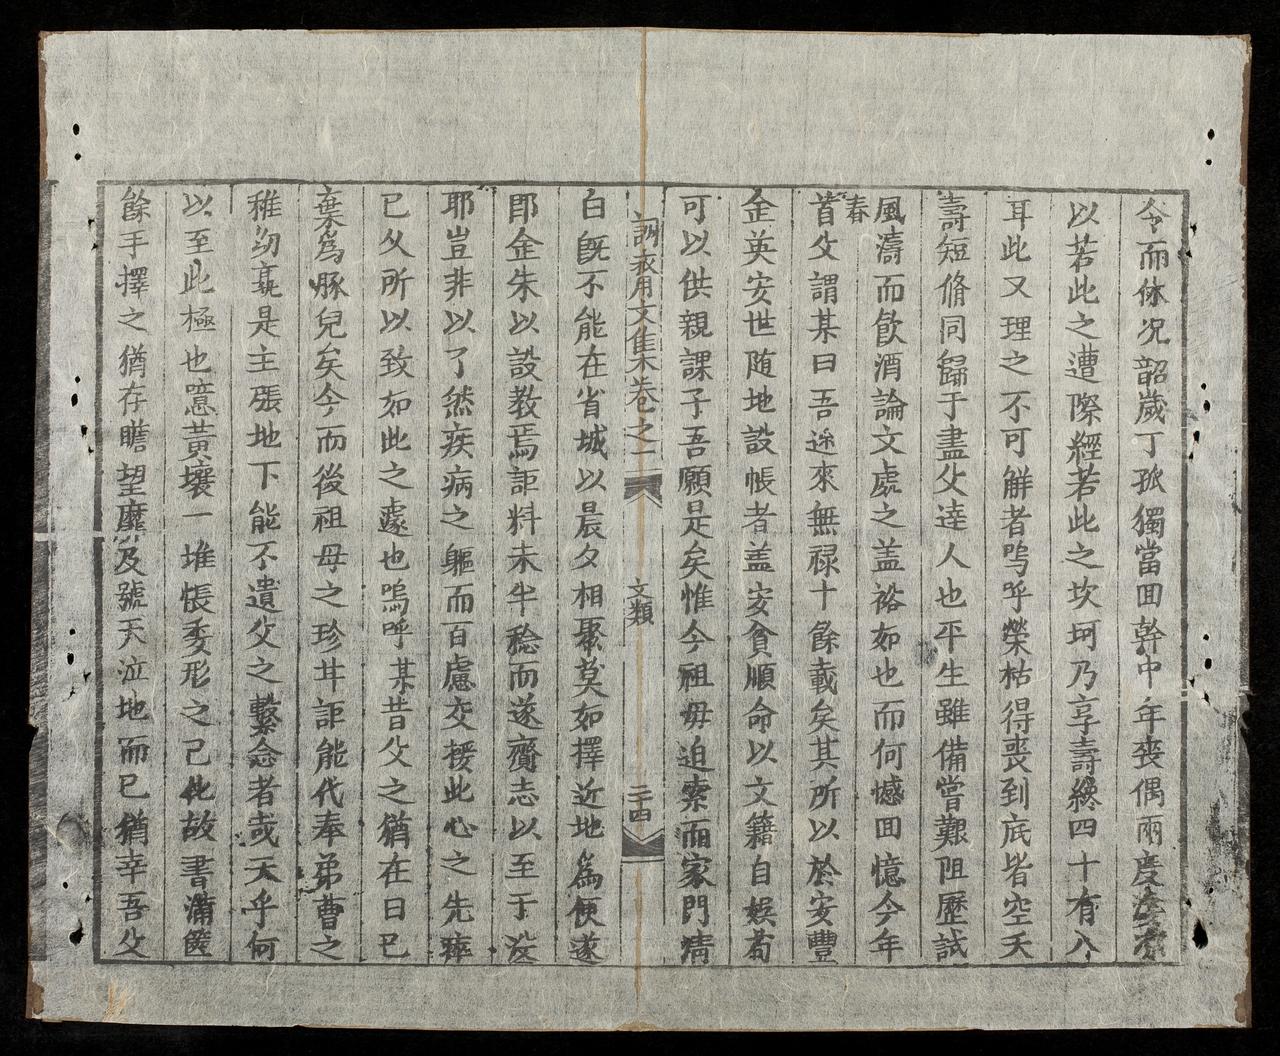 今而休况韶歲丁孤獨當回幹中年喪偶兩慶
以若此之遭際經若此之坎坷乃享壽纔四十有八
耳此又理之不可解者嗚呼榮枯得喪到底皆空天
壽短脩同歸于盡父逹人也平生雖備嘗艱阻歷試
風濤而飲酒論文處之盖裕如也而何憾回憶今年
春
昔父謂某曰吾迩來無禄十餘載矣其所以於安豐
金英安世随地設帳者盖安貧順命以文籍自娯苟
可以供親課子吾願是矣惟今祖母迫寨而家門清
詞衣用文集卷之一 文類 三十四
白既不能在省城以晨夕相聚莫如擇近地為便遂
即金朱以設教焉詎料未半稔而遂齎志以至于没
耶豈非以了然疾病之軀而百慮交接此心之先瘁
已久所以致如此之遽也嗚呼某昔父之猶在日已
棄為豚兒矣今而後祖母之珍甘詎能代奉弟曹之
稚幼裹是主張地下能不遺父之繫念者哉天乎何
以至此極也噫黃壤一堆悵委形之已化故書滿篋
餘手擇之猶存瞻望靡及號天泣地而已猶幸吾父